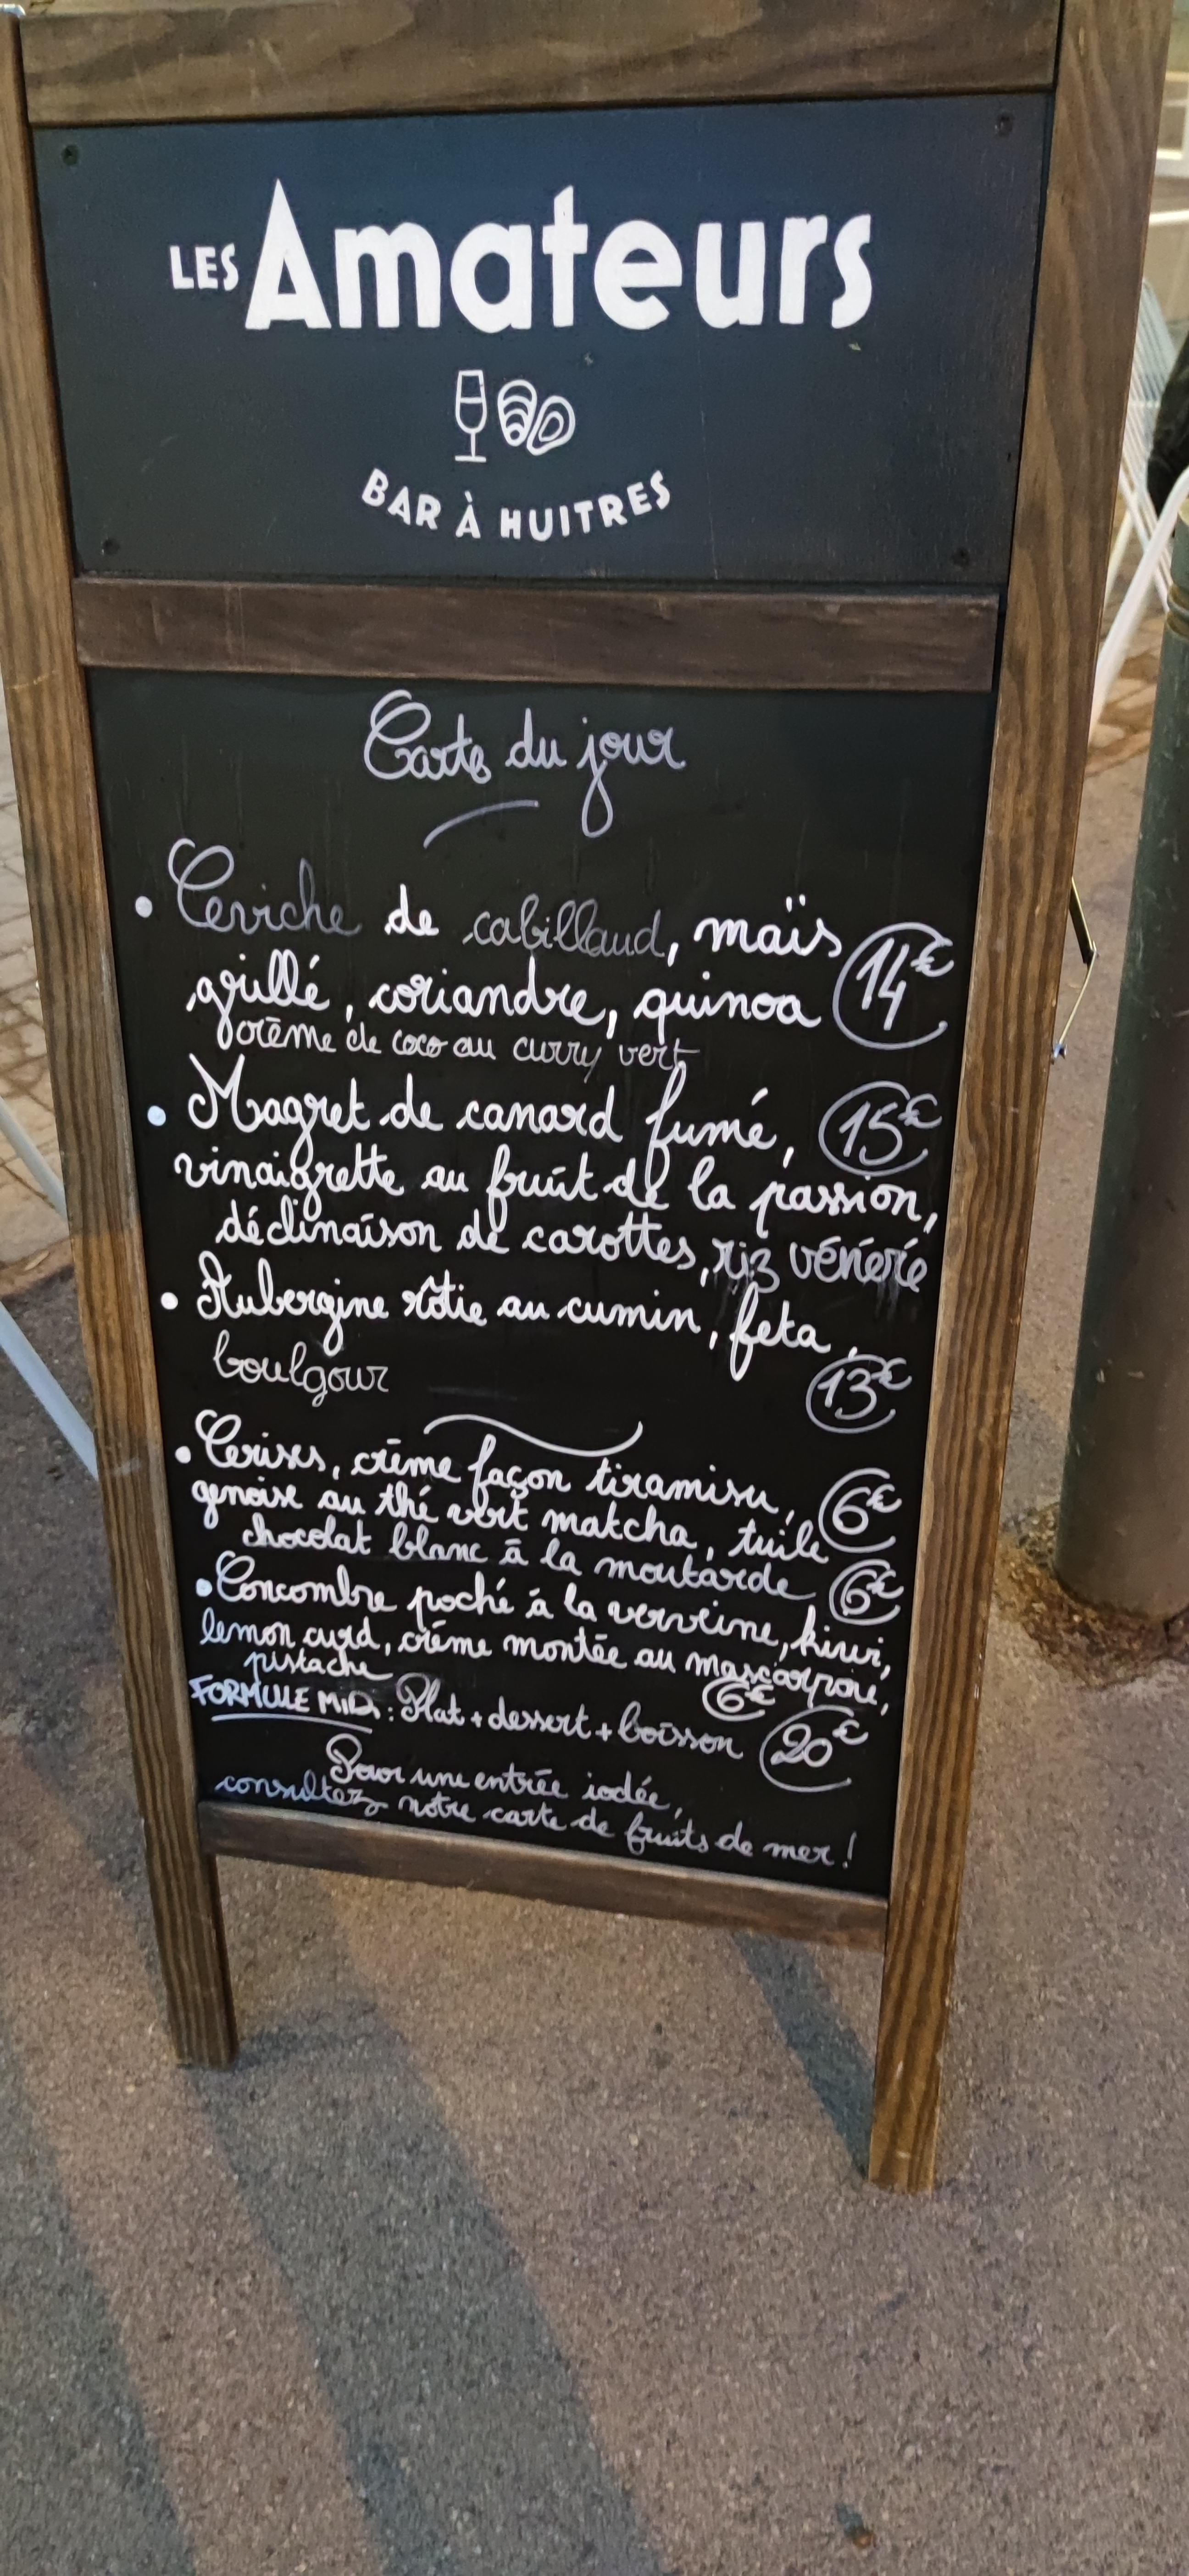 LES Amateurs
BAR À HUITRES
Carte du jour
• Ceviche de cabillaud, maïs
grillé, coriandre, quinoa 14€
crème de coco au curry vert
• Magret de canard fumé, 15€
vinaigrette au fruit de la passion,
déclinaison de carottes, riz vénéré
• Aubergine rôtie au cumin, feta,
boulgour 13€
• Cerises, crème façon tiramisu, 6€
genoise au thé vert matcha, tuile
chocolat blanc à la moutarde 6€
• Concombre poché à la verveine, kiwi,
lemon curd, crème montée au mascarpone,
pistache 6€
FORMULE MIDI : Plat + dessert + boisson 20€
Pour une entrée iodée,
consultez notre carte de fruits de mer !